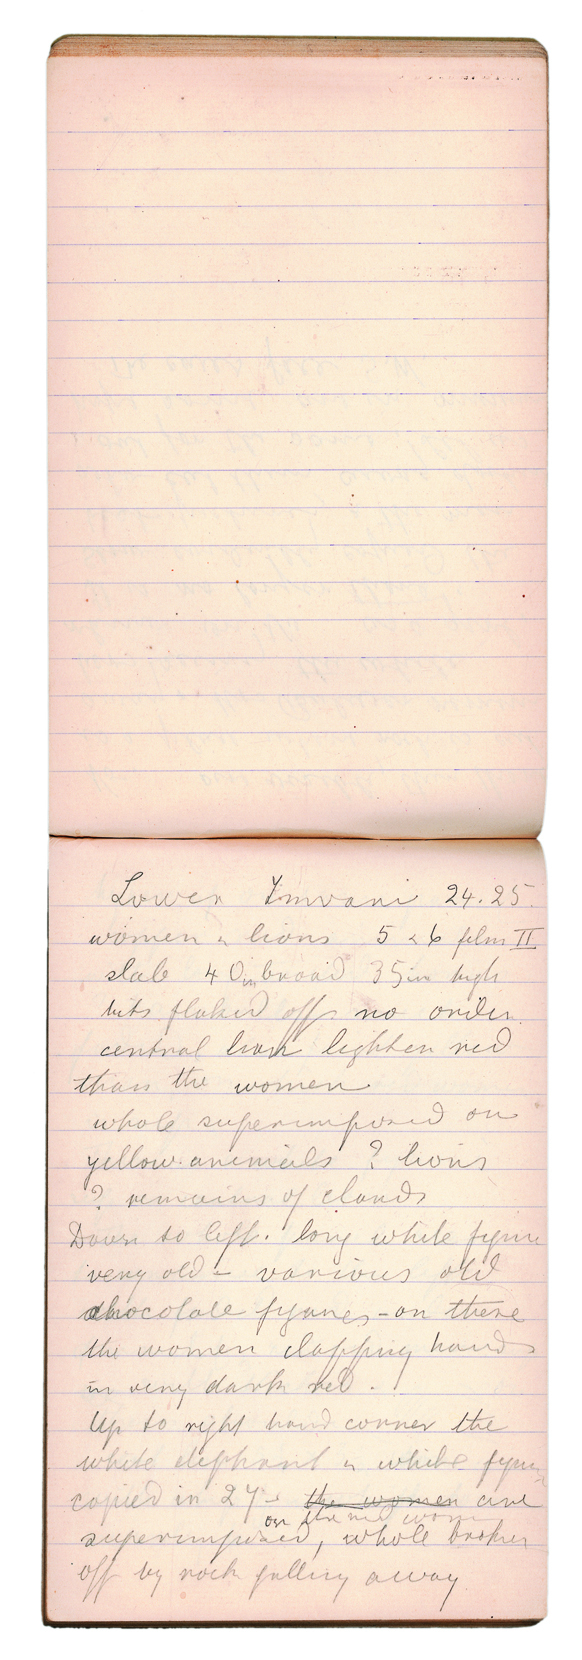 Lower Imvani 24.25.
women & lions 5 & 6 film II
slab 40in broad 35in high
bits flaked off no order
central lion lighter red
than the women
whole superimposed on
yellow animals ? lions
? remains of elands
Down to left. long white figure
very old – various old
chocolate figures – on these
the women clapping hands
in very dark red.
Up to right hand corner the
white elephant & white figure
copied in 27 – the women are
on the red women
superimposed, whole broken
off by rock falling away